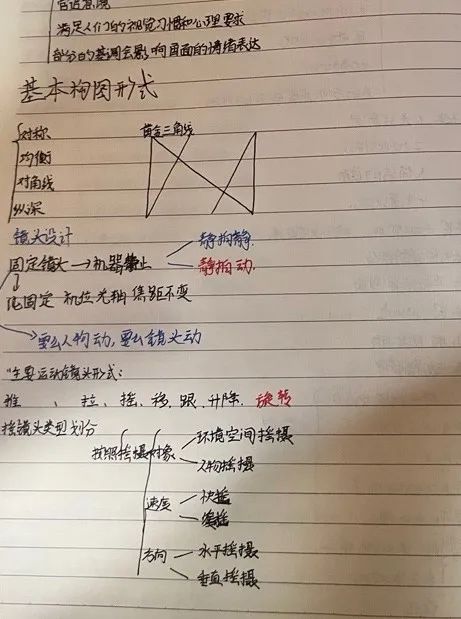 满足人们的视觉习惯和心理要求
部分的基调会影响画面的情绪表达
基本构图形式
对称
黄金三角线
均衡
对角线
纵深
镜头设计
固定镜头→机器静止
静拍静.
静拍动.
固定 机位光轴焦距不变
要么人物动,要么镜头动
"主要运动镜头形式:
推、拉、摇、移、跟、升降、旋转
摇镜头类型划分
按照摇摄对象
环境空间摇摄
人物摇摄
速度
快摇
慢摇
方向
水平摇摄
垂直摇摄